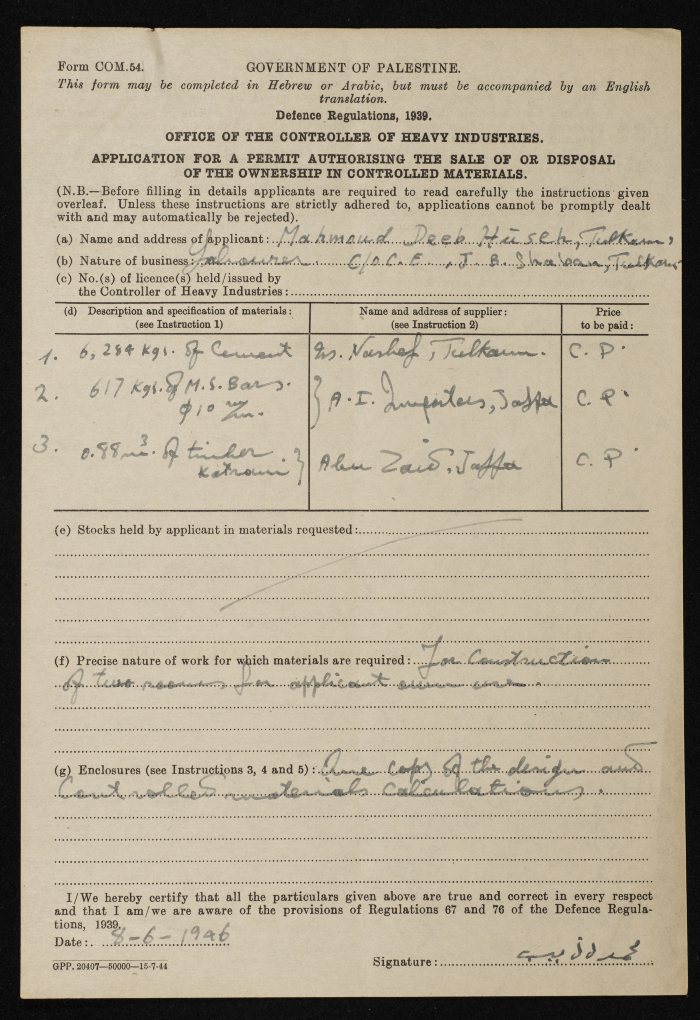 Form COM.54. GOVERNMENT OF PALESTINE.
This form may be completed in Hebrew or Arabic, but must be accompanied by an English
translation.
Defence Regulations, 1939.
OFFICE OF THE CONTROLLER OF HEAVY INDUSTRIES.
APPLICATION FOR A PERMIT AUTHORISING THE SALE OF OR DISPOSAL
OF THE OWNERSHIP IN CONTROLLED MATERIALS.
(N.B.—Before filling in details applicants are required to read carefully the instructions given
overleaf. Unless these instructions are strictly adhered to, applications cannot be promptly dealt
with and may automatically be rejected).
(a) Name and address of applicant: Mahmoud Deeb Huseh, Tulkarm,
(b) Nature of business: Labourer. C/O C.E., J. B. Shaban, Tulkarm
(c) No.(s) of licence(s) held/issued by
the Controller of Heavy Industries:
(d) Description and specification of materials: Name and address of supplier: Price
(see Instruction 1) (see Instruction 2) to be paid:
1. 6,284 Kgs. of Cement Nashef, Tulkarm. C. P.
2. 617 Kgs. of M.S. Bars. } A. I. Jaffa C. P.
φ 10 m/m.
3. 0.88 m³. of timber } Abu Zaid, Jaffa C. P.
Katrani
(e) Stocks held by applicant in materials requested:
(f) Precise nature of work for which materials are required: For Construction
of two rooms for applicant own use.
(g) Enclosures (see Instructions 3, 4 and 5): One copy of the design and
Controlled materials calculations.
I/We hereby certify that all the particulars given above are true and correct in every respect
and that I am/we are aware of the provisions of Regulations 67 and 76 of the Defence Regula-
tions, 1939.
Date: 8-6-1946
GPP. 20407—50000—15-7-44 Signature: محمود ذيب